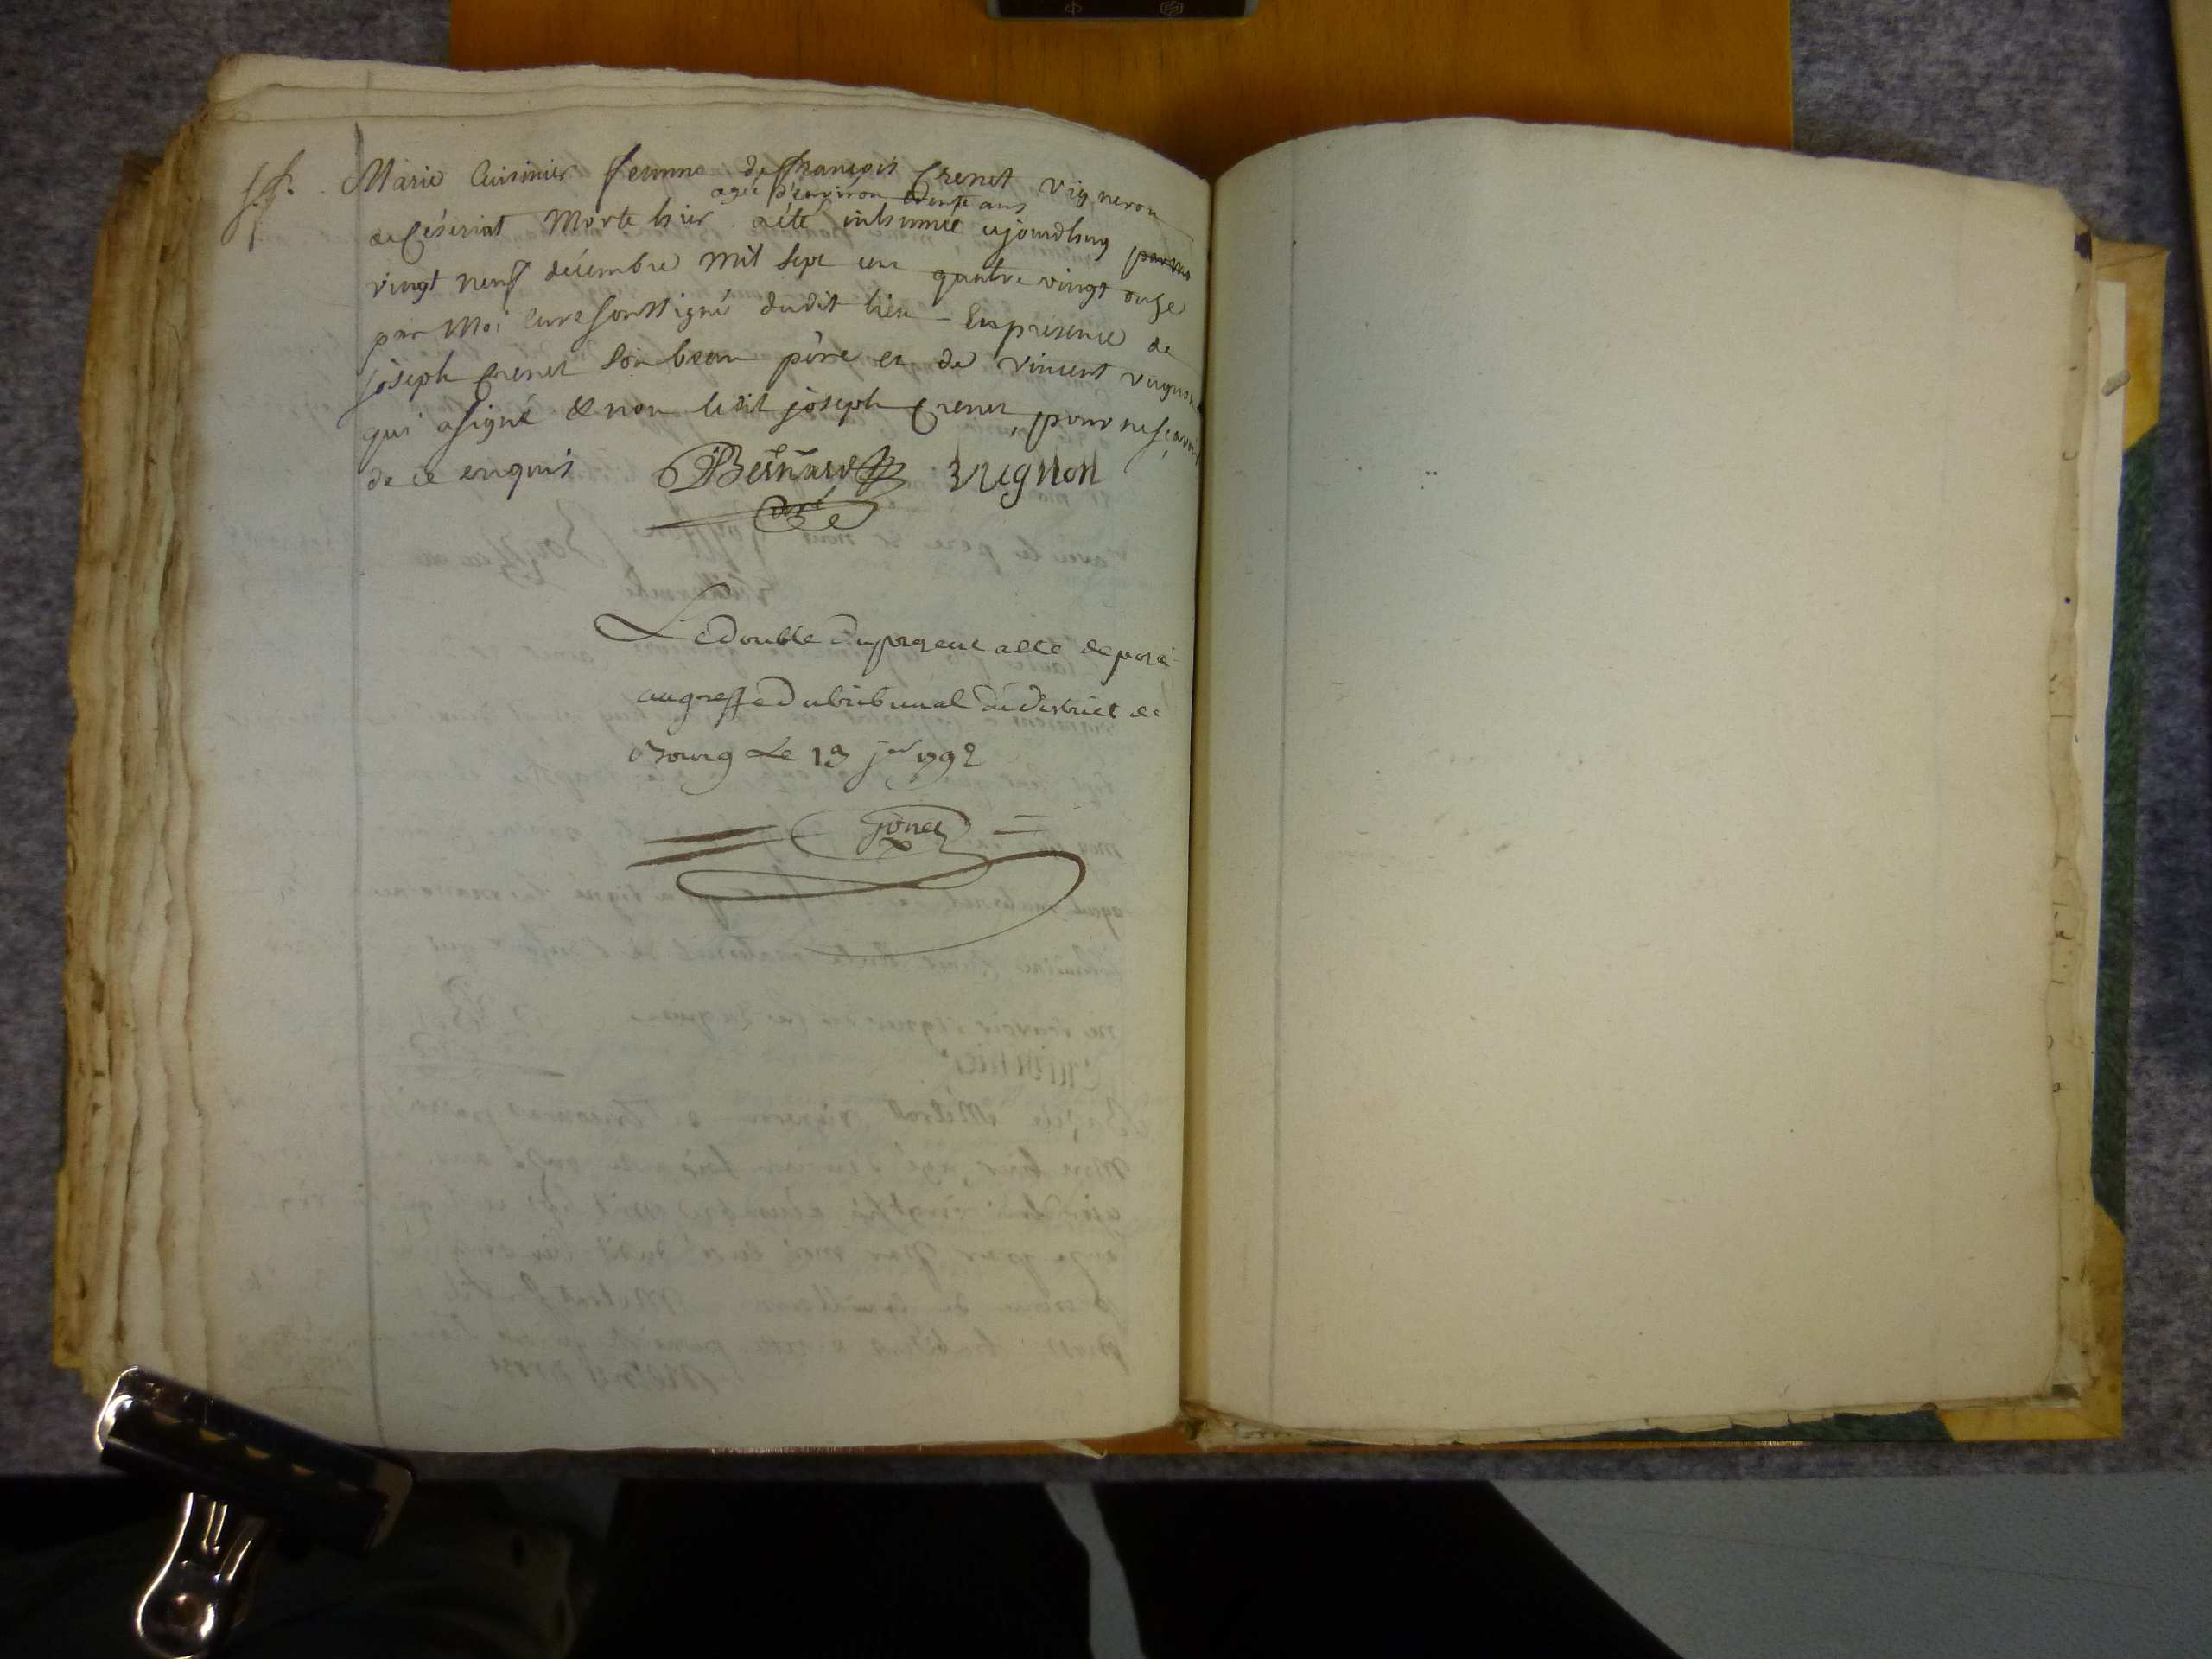 Sp.
Marie Cuisinier femme de françois Crenet vigneron
agée d'environ trente ans
de Ceseriat Morte hier a été inhumée ajourdhuy par Mo
vingt neuf decembre mil sept cen quatre vingt onze
par Moi curé soussigné dudit lieu - En presence de
joseph Crenet son beau père et de Vincent vugnon
qui a signé & non ledit joseph Crenet, pour ne scavoir
de ce enquis Bernard Vugnon
curé
Le double du present a eté deposé
au greffe du tribunal du District de
Bourg Le 13 jer 1792